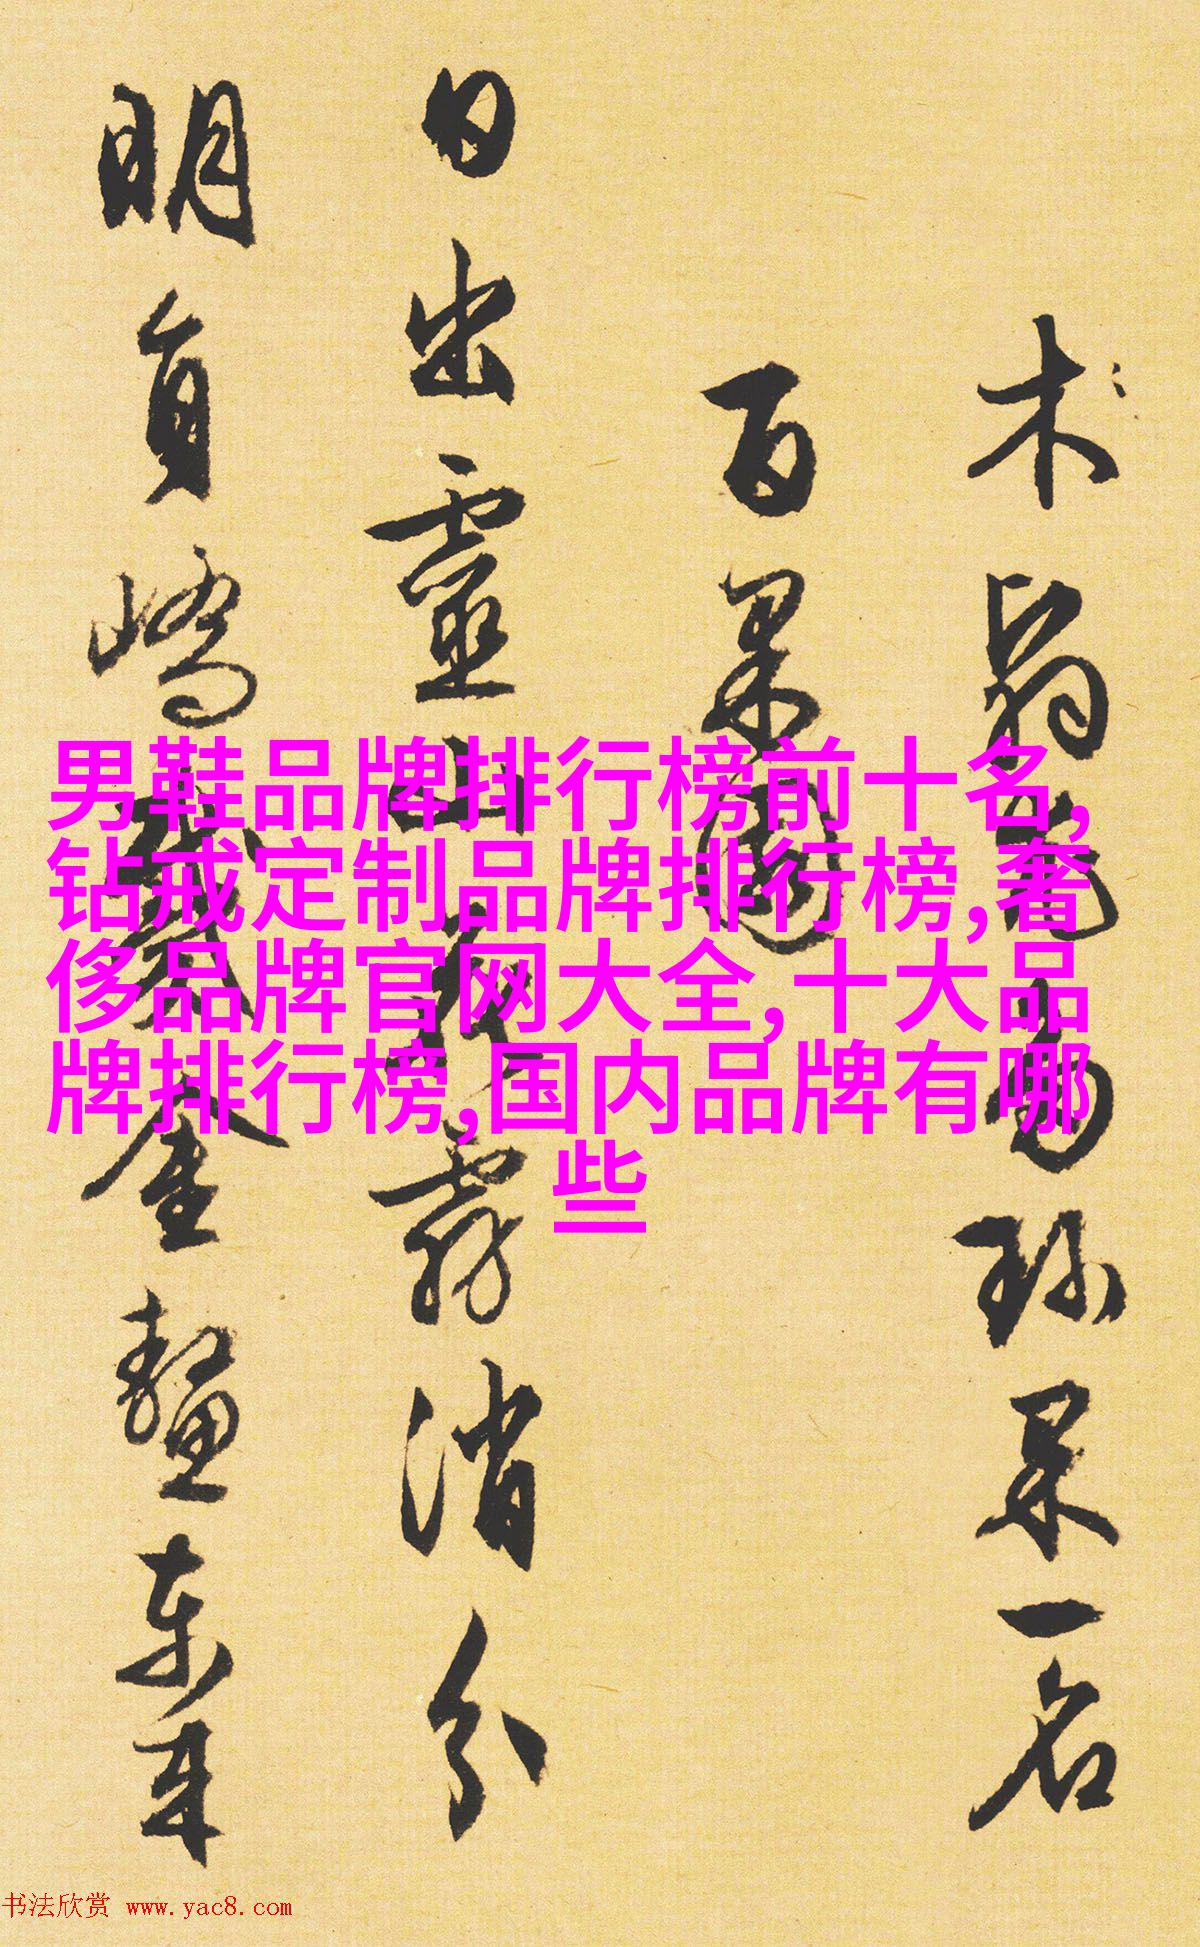 木
百果园
日出靈山花霧消分
明貟嶠戴金鼇東来
珎果一名
男鞋品牌排行榜前十名,
钻戒定制品牌排行榜,奢
侈品牌官网大全,十大品
牌排行榜,国内品牌有哪
些
书法欣赏 www.yac8.com